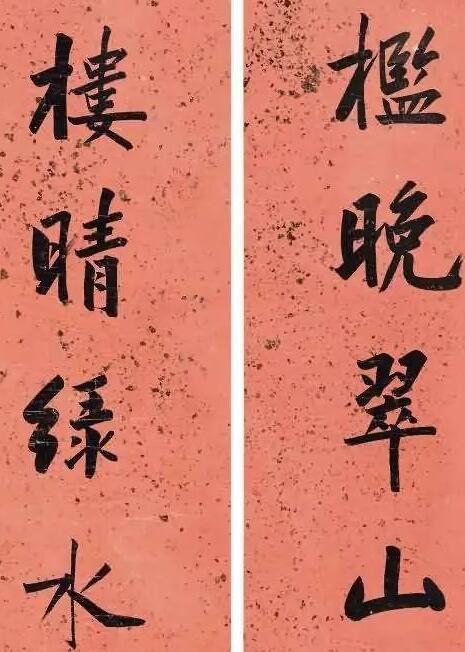 檻晚翠山
樓晴綠水